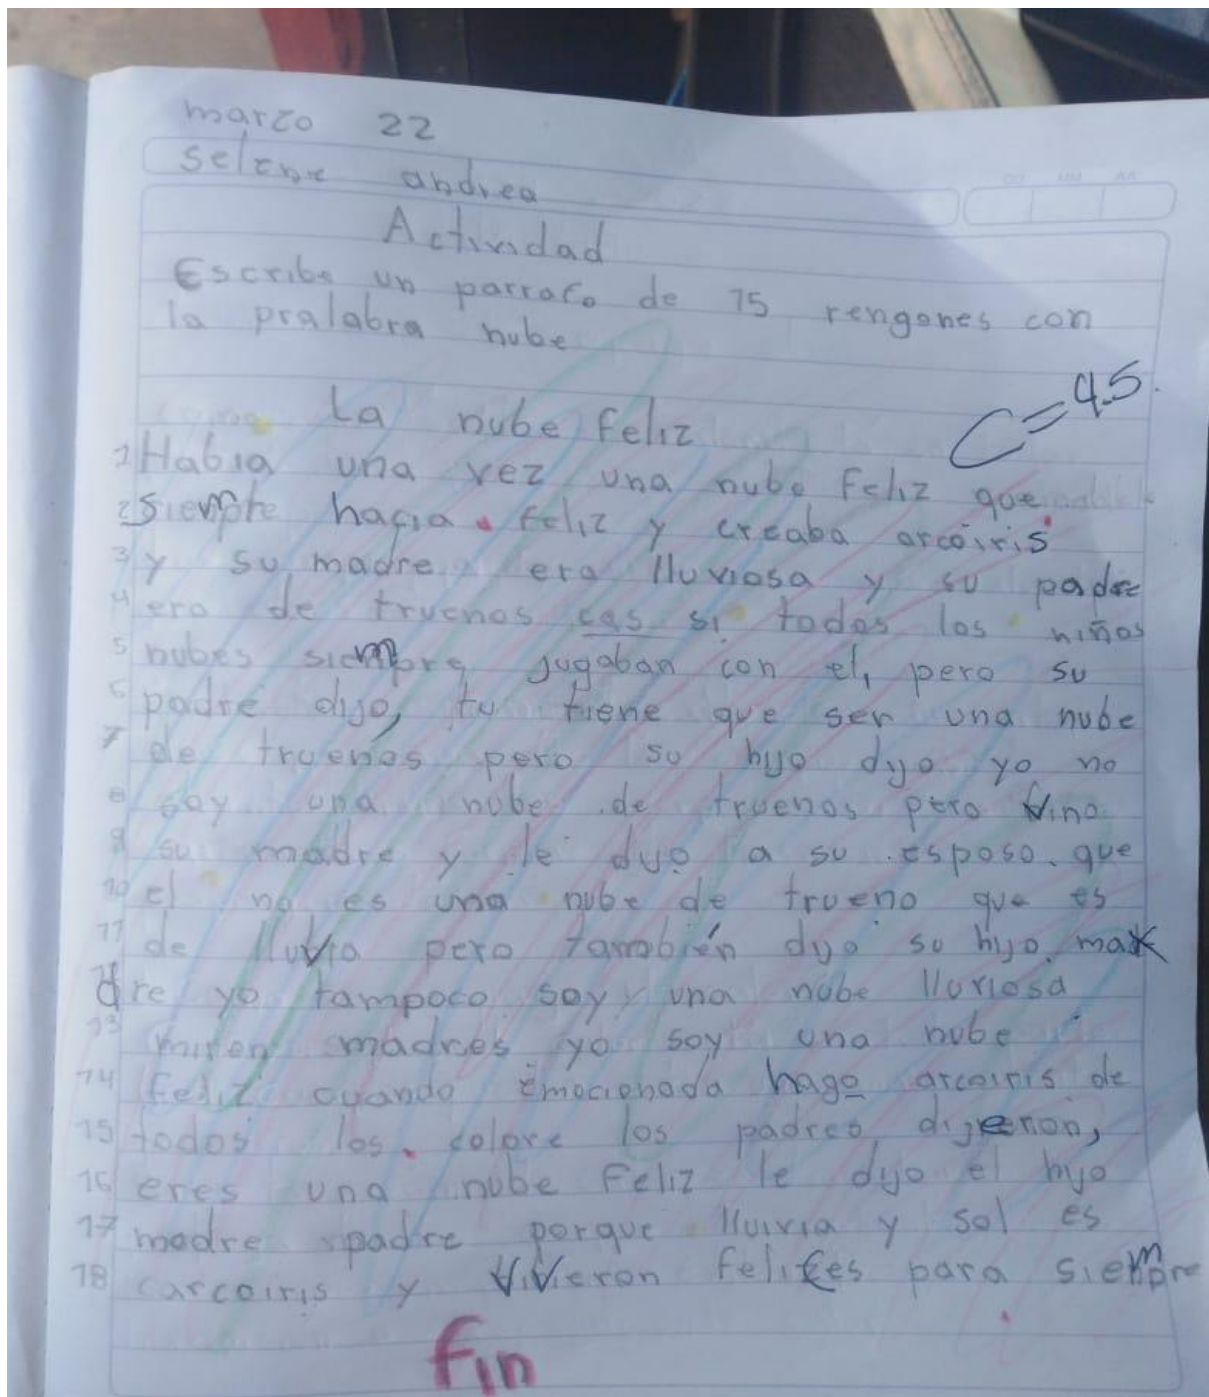 marzo 22
selene andrea
Actividad
Escribe un parrafo de 15 rengones con
la pralabra nube
C=4.5.
La nube feliz
1 Habia una vez una nube feliz que
2 siempre hacia feliz y creaba arcoiris
3 y su madre era lluviosa y su padre
4 era de truenos cas si todos los niños
5 nubes siempre jugaban con el, pero su
6 padre dijo, tu tiene que ser una nube
7 de truenos pero su hijo dijo yo no
8 soy una nube de truenos pero vino
9 su madre y le dijo a su esposo que
10 el no es una nube de trueno que es
11 de lluvia pero también dijo su hijo ma
dre yo tampoco soy una nube lluviosa
13 miren madres yo soy una nube
14 feliz cuando emocionada hago arcoiris de
15 todos los colore los padres dijeron,
16 eres una nube feliz le dijo el hijo
17 madre padre porque lluivia y sol es
18 carcoiris y vivieron felices para siempre
fin